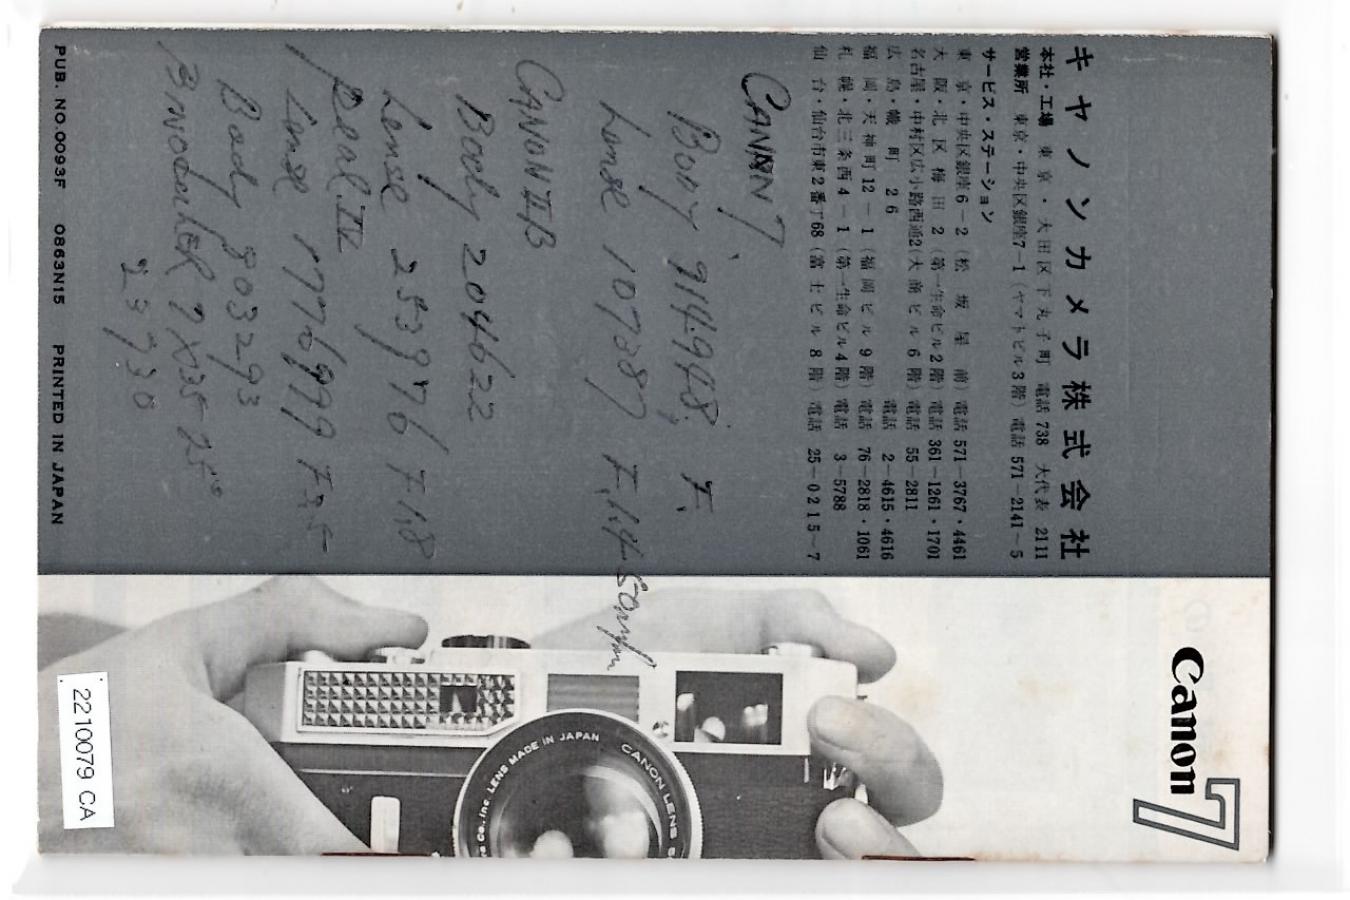 キヤノンカメラ株式会社
本社・工場 東京・大田区下丸子町 電話 738 大代表 2111
営業所 東京・中央区銀座7−1(ヤマトビル3階)電話 571−2141−5
サービス・ステーション
東京・中央区銀座6−2(松坂屋前)電話 571−3767・4461
大阪・北区梅田2(第一生命ビル2階)電話 361−1261・1701
名古屋・中村区広小路西通2(大商ビル6階)電話 55−2811
広島・幟町26 電話 2−4615・4616
福岡・天神町12−1(福岡ビル9階)電話 76−2818・1061
札幌・北三条西4−1(第一生命ビル4階)電話 3−5788
仙台・仙台市東2番丁68(富士ビル8階)電話 25−0215−7
CANON 7
Body 914948 F.
Lense 107287 F.1.4
CANON IIB
Body 204622
Lense 253976 F-1.8
Lense 1776999 F3.5
Body 903293
BinocULER 7X35 25°
23730
PUB. NO.0093F 0863N15 PRINTED IN JAPAN
Canon 7
CANON LENS
Co., Inc. LENS MADE IN JAPAN
2210079 CA